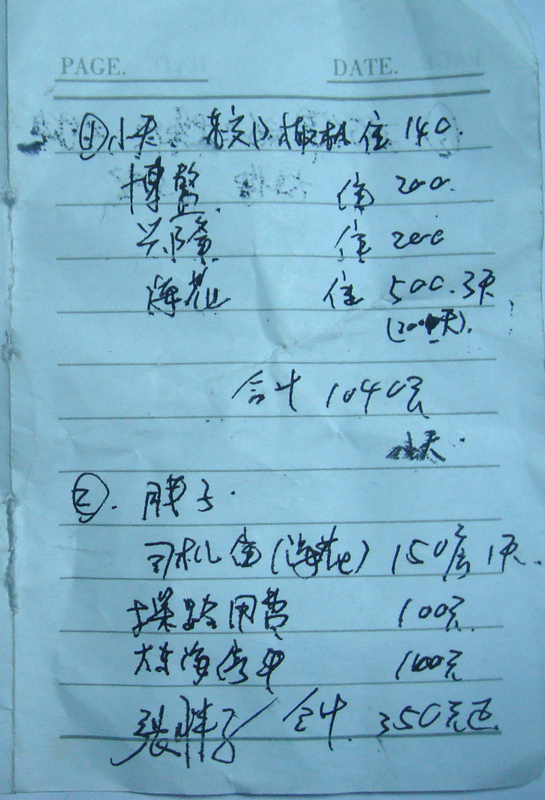 PAGE. DATE.
① 小天 住 140.
博鳌 住 200.
兴隆 住 200
海花 住 500.3天
(200天).
合计 1040元
小天.
②. 胖子.
司机住(海花) 150元 1天.
探路用费 100元
100元
张胖子 合计 350元